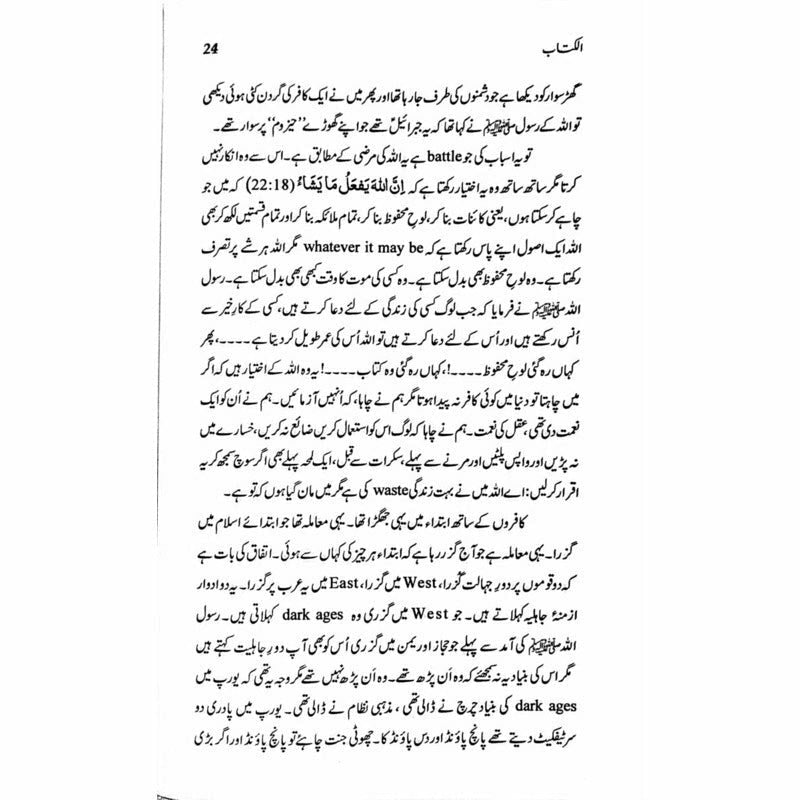 الکتاب 24
گھڑ سوار کو دیکھا ہے جو دشمنوں کی طرف جا رہا تھا اور پھر میں نے ایک کافر کی گردن کٹی ہوئی دیکھی
تو اللہ کے رسول ﷺ نے کہا تھا کہ یہ جبرائیلؑ تھے جو اپنے گھوڑے ’’حیزوم‘‘ پر سوار تھے۔
تو یہ اسباب کی جو battle ہے یہ اللہ کی مرضی کے مطابق ہے۔ اس سے وہ انکار نہیں
کرتا مگر ساتھ ساتھ وہ یہ اختیار رکھتا ہے کہ اِنَّ اللہَ یَفعَلُ مَا یَشَاءُ (22:18) کہ میں جو
چاہے کر سکتا ہوں، یعنی کائنات بنا کر، لوحِ محفوظ بنا کر، تمام ملائکہ بنا کر اور تمام قسمتیں لکھ کر بھی
اللہ ایک اصول اپنے پاس رکھتا ہے کہ whatever it may be مگر اللہ ہر شے پر تصرف
رکھتا ہے۔ وہ لوحِ محفوظ بھی بدل سکتا ہے۔ وہ کسی کی موت کا وقت کبھی بھی بدل سکتا ہے۔ رسول
اللہ ﷺ نے فرمایا کہ جب لوگ کسی کی زندگی کے لئے دعا کرتے ہیں، کسی کے کارِ خیر سے
اُنس رکھتے ہیں اور اُس کے لئے دعا کرتے ہیں تو اللہ اُس کی عمر طویل کر دیتا ہے ۔۔۔۔، پھر
کہاں رہ گئی لوحِ محفوظ ۔۔۔۔!، کہاں رہ گئی وہ کتاب ۔۔۔۔! یہ وہ اللہ کے اختیار ہیں کہ اگر
میں چاہتا تو دنیا میں کوئی کافر نہ پیدا ہوتا مگر ہم نے چاہا، کہ اُنہیں آزمائیں۔ ہم نے اُن کو ایک
نعمت دی تھی، عقل کی نعمت۔ ہم نے چاہا کہ لوگ اس کو استعمال کریں ضائع نہ کریں، خسارے میں
نہ پڑیں اور واپس پلٹیں اور مرنے سے پہلے، سکرات سے قبل، ایک لمحہ پہلے بھی اگر سوچ سمجھ کر یہ
اقرار کر لیں: اے اللہ میں نے بہت زندگی waste کی ہے مگر میں مان گیا ہوں کہ تو ہے۔
کافروں کے ساتھ ابتداء میں یہی جھگڑا تھا۔ یہی معاملہ تھا جو ابتدائے اسلام میں
گزرا۔ یہی معاملہ ہے جو آج گزر رہا ہے کہ ابتداء ہر چیز کی کہاں سے ہوئی۔ اتفاق کی بات ہے
کہ دو قوموں پر دورِ جہالت گزرا، West میں گزرا، East میں یہ عرب پر گزرا۔ یہ دو ادوار
ازمنۂ جاہلیہ کہلاتے ہیں۔ جو West میں گزری وہ dark ages کہلاتی ہیں۔ رسول
اللہ ﷺ کی آمد سے پہلے جو حجاز اور یمن میں گزری اُس کو بھی آپ دورِ جاہلیت کہتے ہیں
مگر اس کی بنیاد یہ نہ سمجھئے کہ وہ اَن پڑھ تھے۔ وہ اَن پڑھ نہیں تھے مگر وجہ یہ تھی کہ یورپ میں
dark ages کی بنیاد چرچ نے ڈالی تھی، مذہبی نظام نے ڈالی تھی۔ یورپ میں پادری دو
سرٹیفکیٹ دیتے تھے پانچ پاؤنڈ اور دس پاؤنڈ کا۔ چھوٹی جنت چاہئے تو پانچ پاؤنڈ اور اگر بڑی